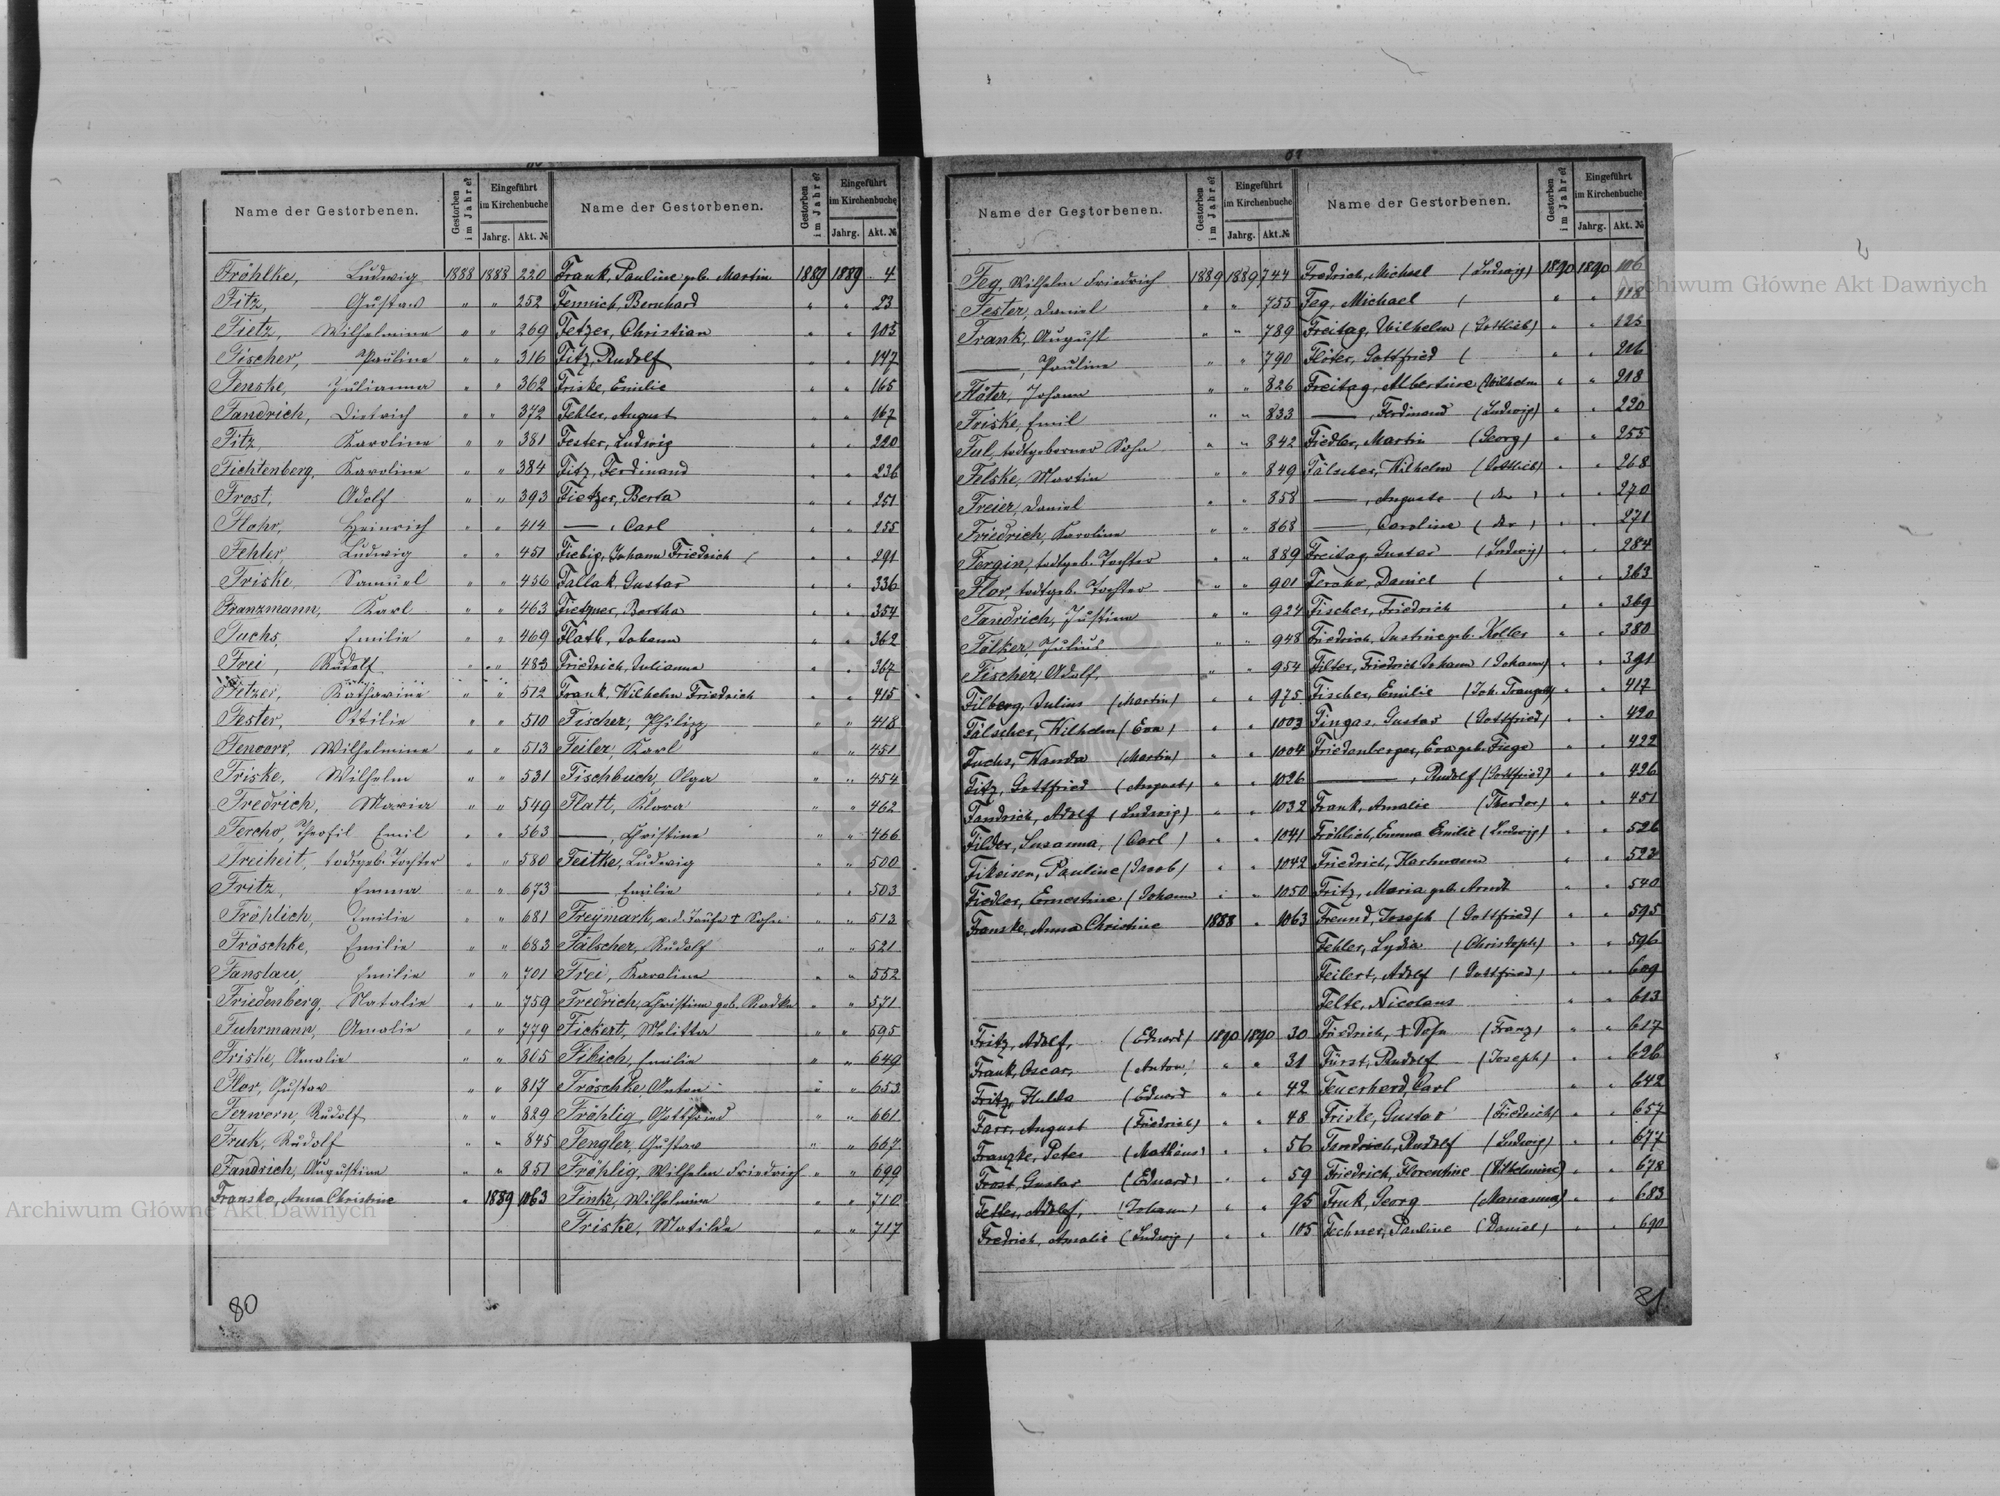 Name der Gestorbenen.
Gestorben im Jahre
Eingeführt im Kirchenbuche
Jahrg. Akt. №
Fröhlke, Ludwig 1888 1888 220
Fitz, Gustav " " 252
Fietz, Wilhelmine " " 269
Fischer, Pauline " " 316
Fenske, Julianna " " 362
Fandrich, Dietrich " " 372
Fitz, Karoline " " 381
Fichtenberg, Karoline " " 384
Frost, Adolf " " 393
Flohr, Heinrich " " 414
Fehler, Ludwig " " 451
Friske, Samuel " " 456
Franzmann, Karl " " 463
Fuchs, Emilie " " 469
Frei, Rudolf " " 483
Katharine " " 512
Fester, Ottilie " " 510
Wilhelmine " " 513
Friske, Wilhelm " " 531
Fredrich, Maria " " 549
Fercho, Theofil Emil " " 563
Freiheit, todtgeb. Tochter " " 580
Fritz, Emma " " 673
Fröhlich, Emilie " " 681
Fröschke, Emilie " " 683
Fanslau, Emilie " " 701
Friedenberg, Natalie " " 759
Fuhrmann, Amalie " " 779
Friske, Amalie " " 805
Flor, Gustav " " 817
Ferworn, Rudolf " " 829
Fruk, Rudolf " " 845
Fandrich, Augustine " " 851
Franske, Anna Christine " 1889 1063
80
Name der Gestorbenen.
Gestorben im Jahre
Eingeführt im Kirchenbuche
Jahrg. Akt. №
Frank, Pauline geb. Martin 1889 1889 4
Fennich, Bernhard " " 23
Fetzer, Christian " " 103
Fitz, Rudolf " " 147
Friske, Emilie " " 165
Fehler, August " " 167
Fester, Ludwig " " 220
Fitz, Ferdinand " " 236
Fietzer, Berta " " 251
—, Carl " " 255
Fiebig, Johann Friedrich " " 291
Fallak, Gustav " " 336
Bertha " " 354
Flatt, Johann " " 362
Friedrich, Julianna " " 367
Frank, Wilhelm Friedrich " " 415
Fischer, Philipp " " 418
Feiler, Karl " " 451
Fischbuch, Olga " " 454
Flatt, Klara " " 462
—, Christine " " 466
Feitke, Ludwig " " 500
—, Emilie " " 503
Freymark, v. d. Taufe † Sohn " " 513
Fälscher, Rudolf " " 521
Frei, Karoline " " 552
Fredrich, Christine geb. Radke " " 571
Fickert, Melitta " " 595
Fibich, Emilie " " 649
Fröschke, Anton " " 653
Fröhlig, Gottfried " " 661
Fengler, Gustav " " 667
Fröhlig, Wilhelm Friedrich " " 699
Fink, Wilhelmine " " 710
Friske, Matilde " " 717
Name der Gestorbenen.
Gestorben im Jahre
Eingeführt im Kirchenbuche
Jahrg. Akt. №
Feg, Wilhelm Friedrich 1889 1889 744
Fester, Daniel " " 755
Frank, August " " 789
—, Pauline " " 790
Flöter, Johann " " 826
Friske, Emil " " 833
Ful, todtgeborner Sohn " " 842
Felske, Martin " " 849
Freier, Daniel " " 858
Friedrich, Karoline " " 868
Fergin, todtgeb. Tochter " " 889
Flor, todtgeb. Tochter " " 901
Fandrich, Justine " " 924
Fölker, Julius " " 948
Fischer, Adolf " " 954
Filberg, Julius (Martin) " " 975
Fälscher, Wilhelm (Eva) " " 1003
Fuchs, Wanda (Martin) " " 1004
Fitz, Gottfried (August) " " 1026
Fandrich, Adolf (Ludwig) " " 1032
Susanna, (Carl) " " 1041
Fikeisen, Pauline (Jacob) " " 1042
Fiedler, Ernestine (Johann " " 1050
Franske, Anna Christine 1888 " 1063
Fritz, Adolf, (Eduard) 1890 1890 30
Frank, Oscar, (Anton) " " 31
Fritz, Hulda (Eduard " " 42
Farr, August (Friedrich) " " 48
Franzke, Peter (Mathäus) " " 56
Frost, Gustav (Eduard) " " 59
Adolf, (Johann) " " 95
Fredrich, Amalie (Ludwig) " " 105
Name der Gestorbenen.
Gestorben im Jahre
Eingeführt im Kirchenbuche
Jahrg. Akt. №
Fredrich, Michael (Ludwig) 1890 1890 106
Feg, Michael ( " " 118
Freitag, Wilhelm (Gottlieb) " " 125
Flöter, Gottfried ( " " 216
Freitag, Albertine (Wilhelm " " 218
—, Ferdinand (Ludwig) " " 220
Fiedler, Martin (Georg) " " 255
Fälscher, Wilhelm (Gottlieb) " " 268
—, Auguste ( " " 270
—, Caroline ( " " 271
Freitag, Gustav (Ludwig) " " 284
Daniel ( " " 363
Fischer, Friedrich " " 369
Friedrich, Justine geb. Koller " " 380
Friedrich Johann (Johann) " " 391
Fischer, Emilie (Joh. Traugott) " " 417
Fingas, Gustav (Gottfried) " " 420
Friedenberger, Eva geb. Fiege " " 422
—, Rudolf (Gottfried) " " 426
Frank, Amalie (Theodor) " " 451
Fröhlich, Emma Emilie (Ludwig) " " 526
Friedrich, Hartmann " " 523
Fritz, Maria geb. Arndt " " 540
Freund, Joseph (Gottfried) " " 595
Fehler, Lydia (Christoph) " " 596
Feilert, Adolf (Gottfried) " " 609
Felte, Nicolaus " " 613
Friedrich, † Sohn (Franz) " " 617
Fürst, Rudolf (Joseph) " " 626
Feuerherd, Carl " " 642
Friske, Gustav (Friedrich) " " 657
Fandrich, Rudolf (Ludwig) " " 677
Friedrich, Florentine (Wilhelmine) " " 678
Fruk, Georg (Marianna) " " 683
Fechner, Pauline (Daniel) " " 690
81
Archiwum Główne Akt Dawnych
Archiwum Główne Akt Dawnych